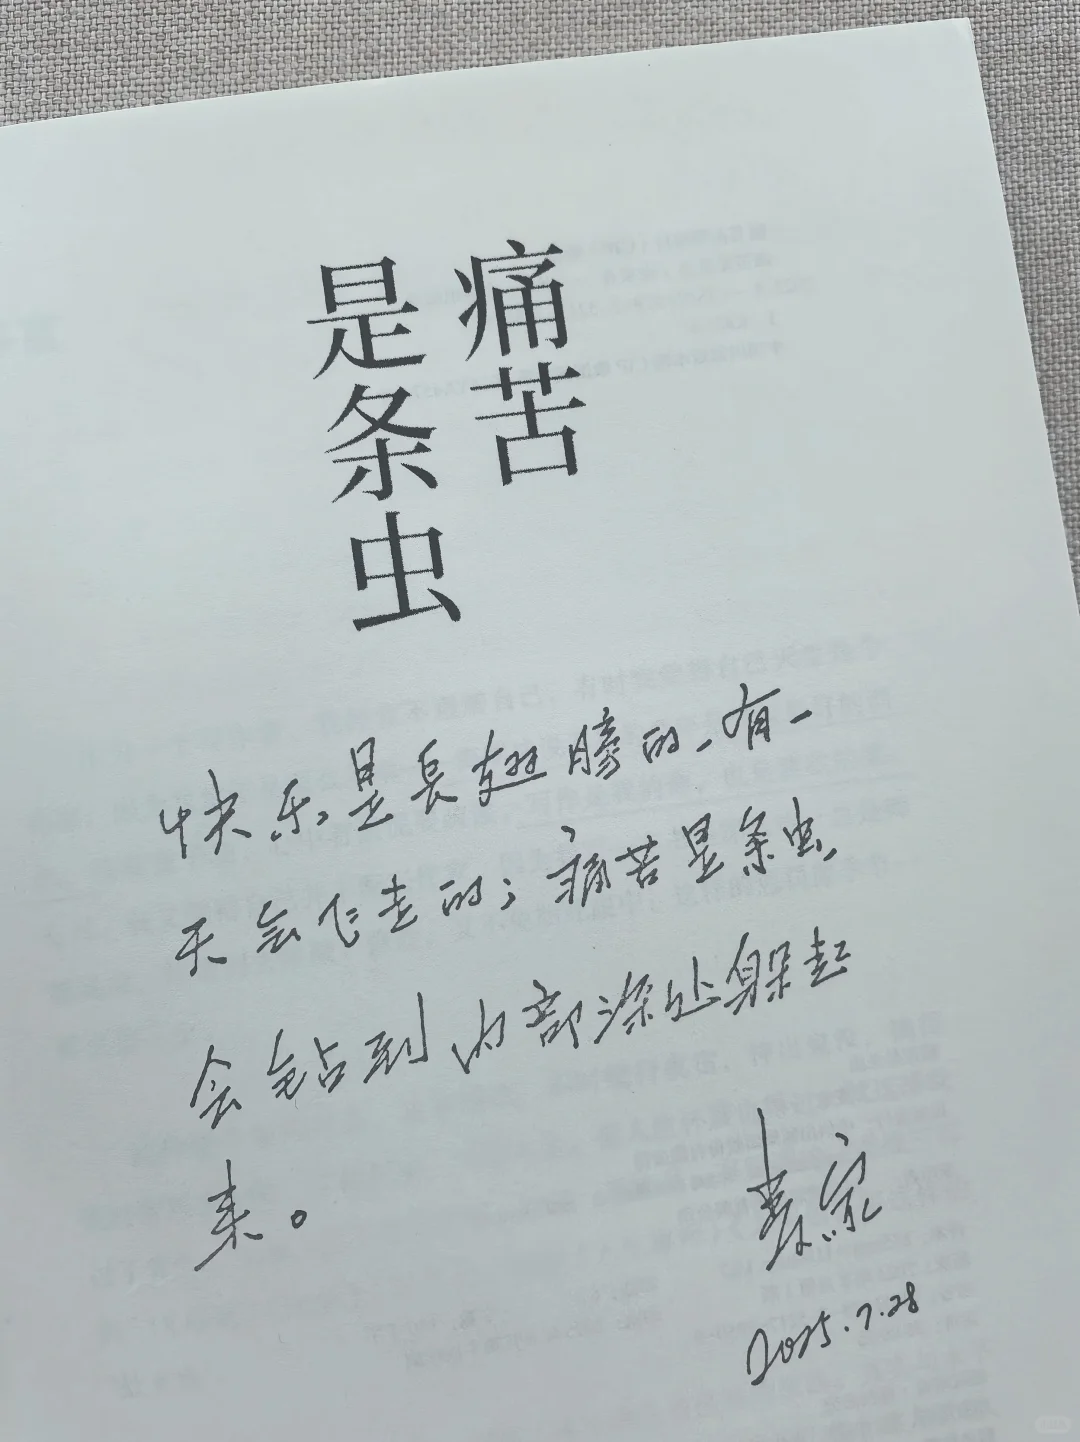 痛苦
是条虫
快乐是长翅膀的，有一
天会飞走的；痛苦是条虫，
会钻到内部深处躲起
来。
2025.7.28